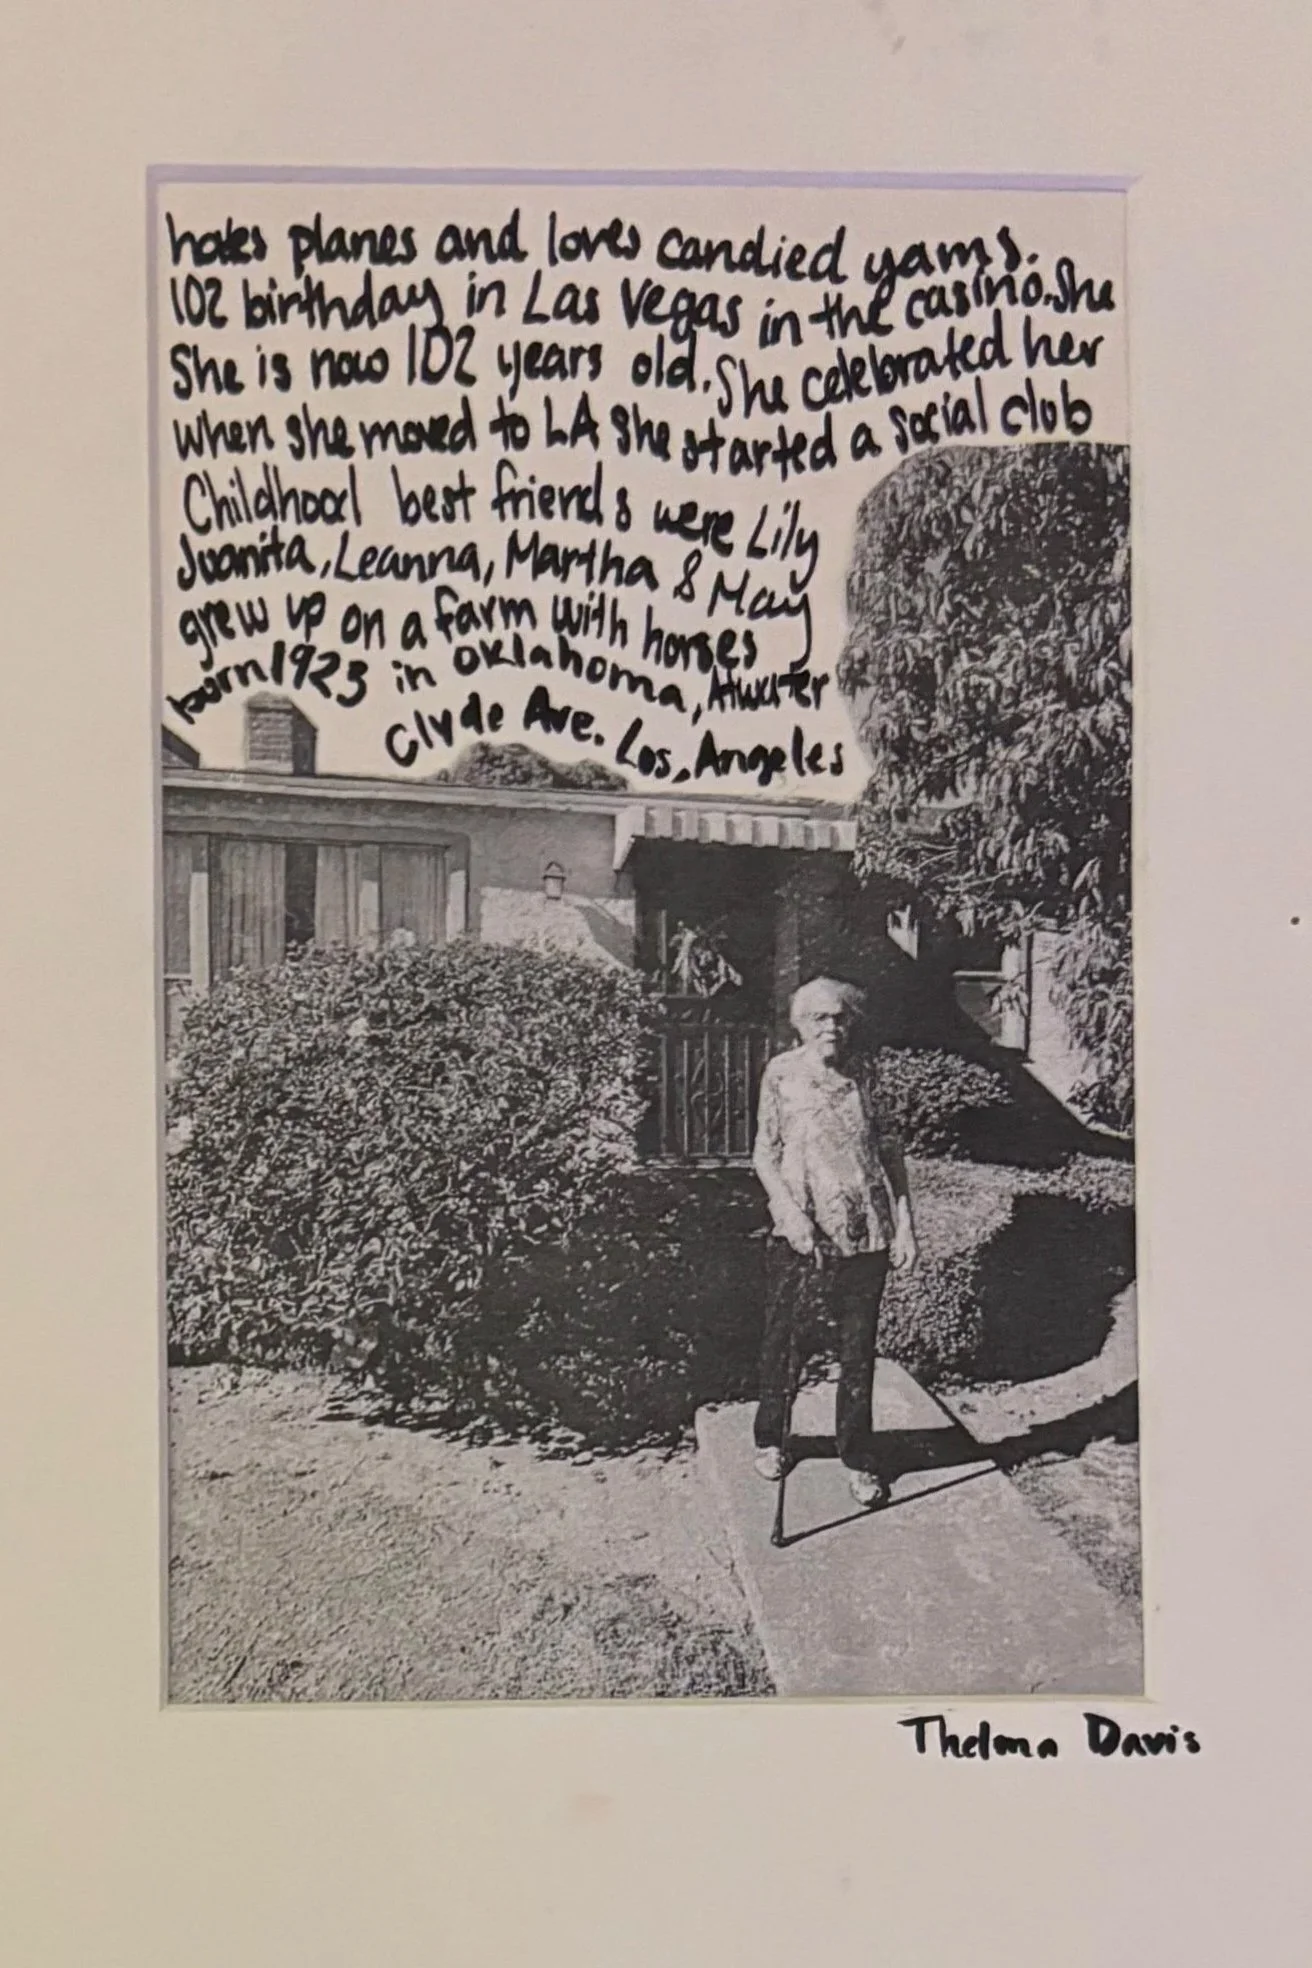 hates planes and loves candied yams.
102 birthday in Las Vegas in the casino. She
She is now 102 years old. She celebrated her
when she moved to LA she started a social club
Childhood best friends were Lily
Juanita, Leanna, Martha & May
grew up on a farm with horses
born 1923 in Oklahoma, Atwater
Clyde Ave. Los, Angeles
Thelma Davis